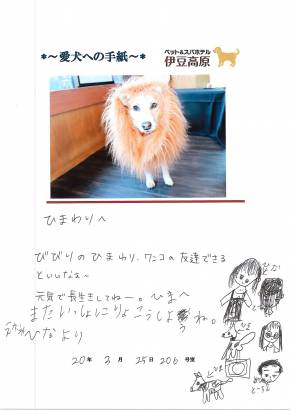 *～愛犬への手紙～*
ペット&スパホテル
伊豆高原
ひまわりへ
びびりのひまわり、ワンコの友達できる
といいなぁ～
元気で長生きしてねー。ひまへ
またいっしょにりょこうしょうね。
ひなより
20年 3月 25日 206号室